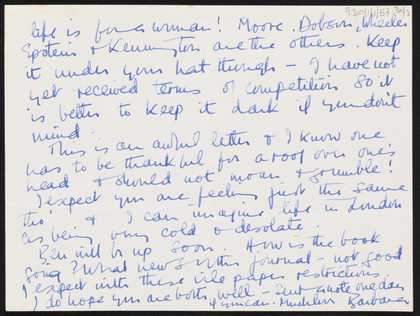 life is for a woman! Moore. Dobson, Wheeler
Epstein & Kennington are the others. Keep
it under your hat though – I have not
yet received terms of competition so it
is better to keep it dark if you don't
mind.
This is an awful letter & I know one
has to be thankful for a roof over one's
head & should not moan & grumble!
I expect you are feeling just the same
tho' & I can imagine life in London
as being very cold & desolate.
Ben will be up soon. How is the book
going? What news of the journal – not good
I expect with these vile paper restrictions.
I do hope you are both well – one day
if you can. Much love Barbara